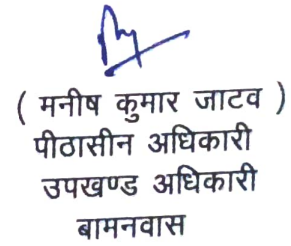 ( मनीष कुमार जाटव )
पीठासीन अधिकारी
उपखण्ड अधिकारी
बामनवास